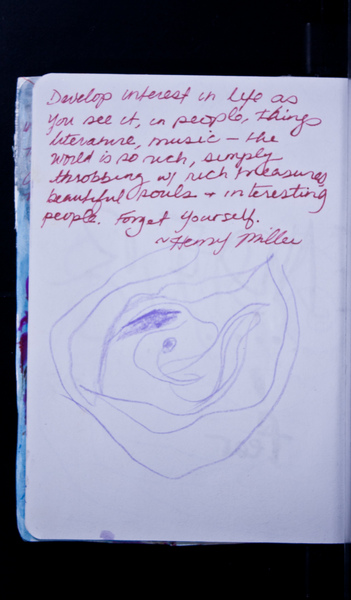 Develop interest in life as
you see it, in people, things
literature, music – the
world is so rich, simply
throbbing w/ rich treasures,
beautiful souls + interesting
people. Forget yourself.
~Henry Miller